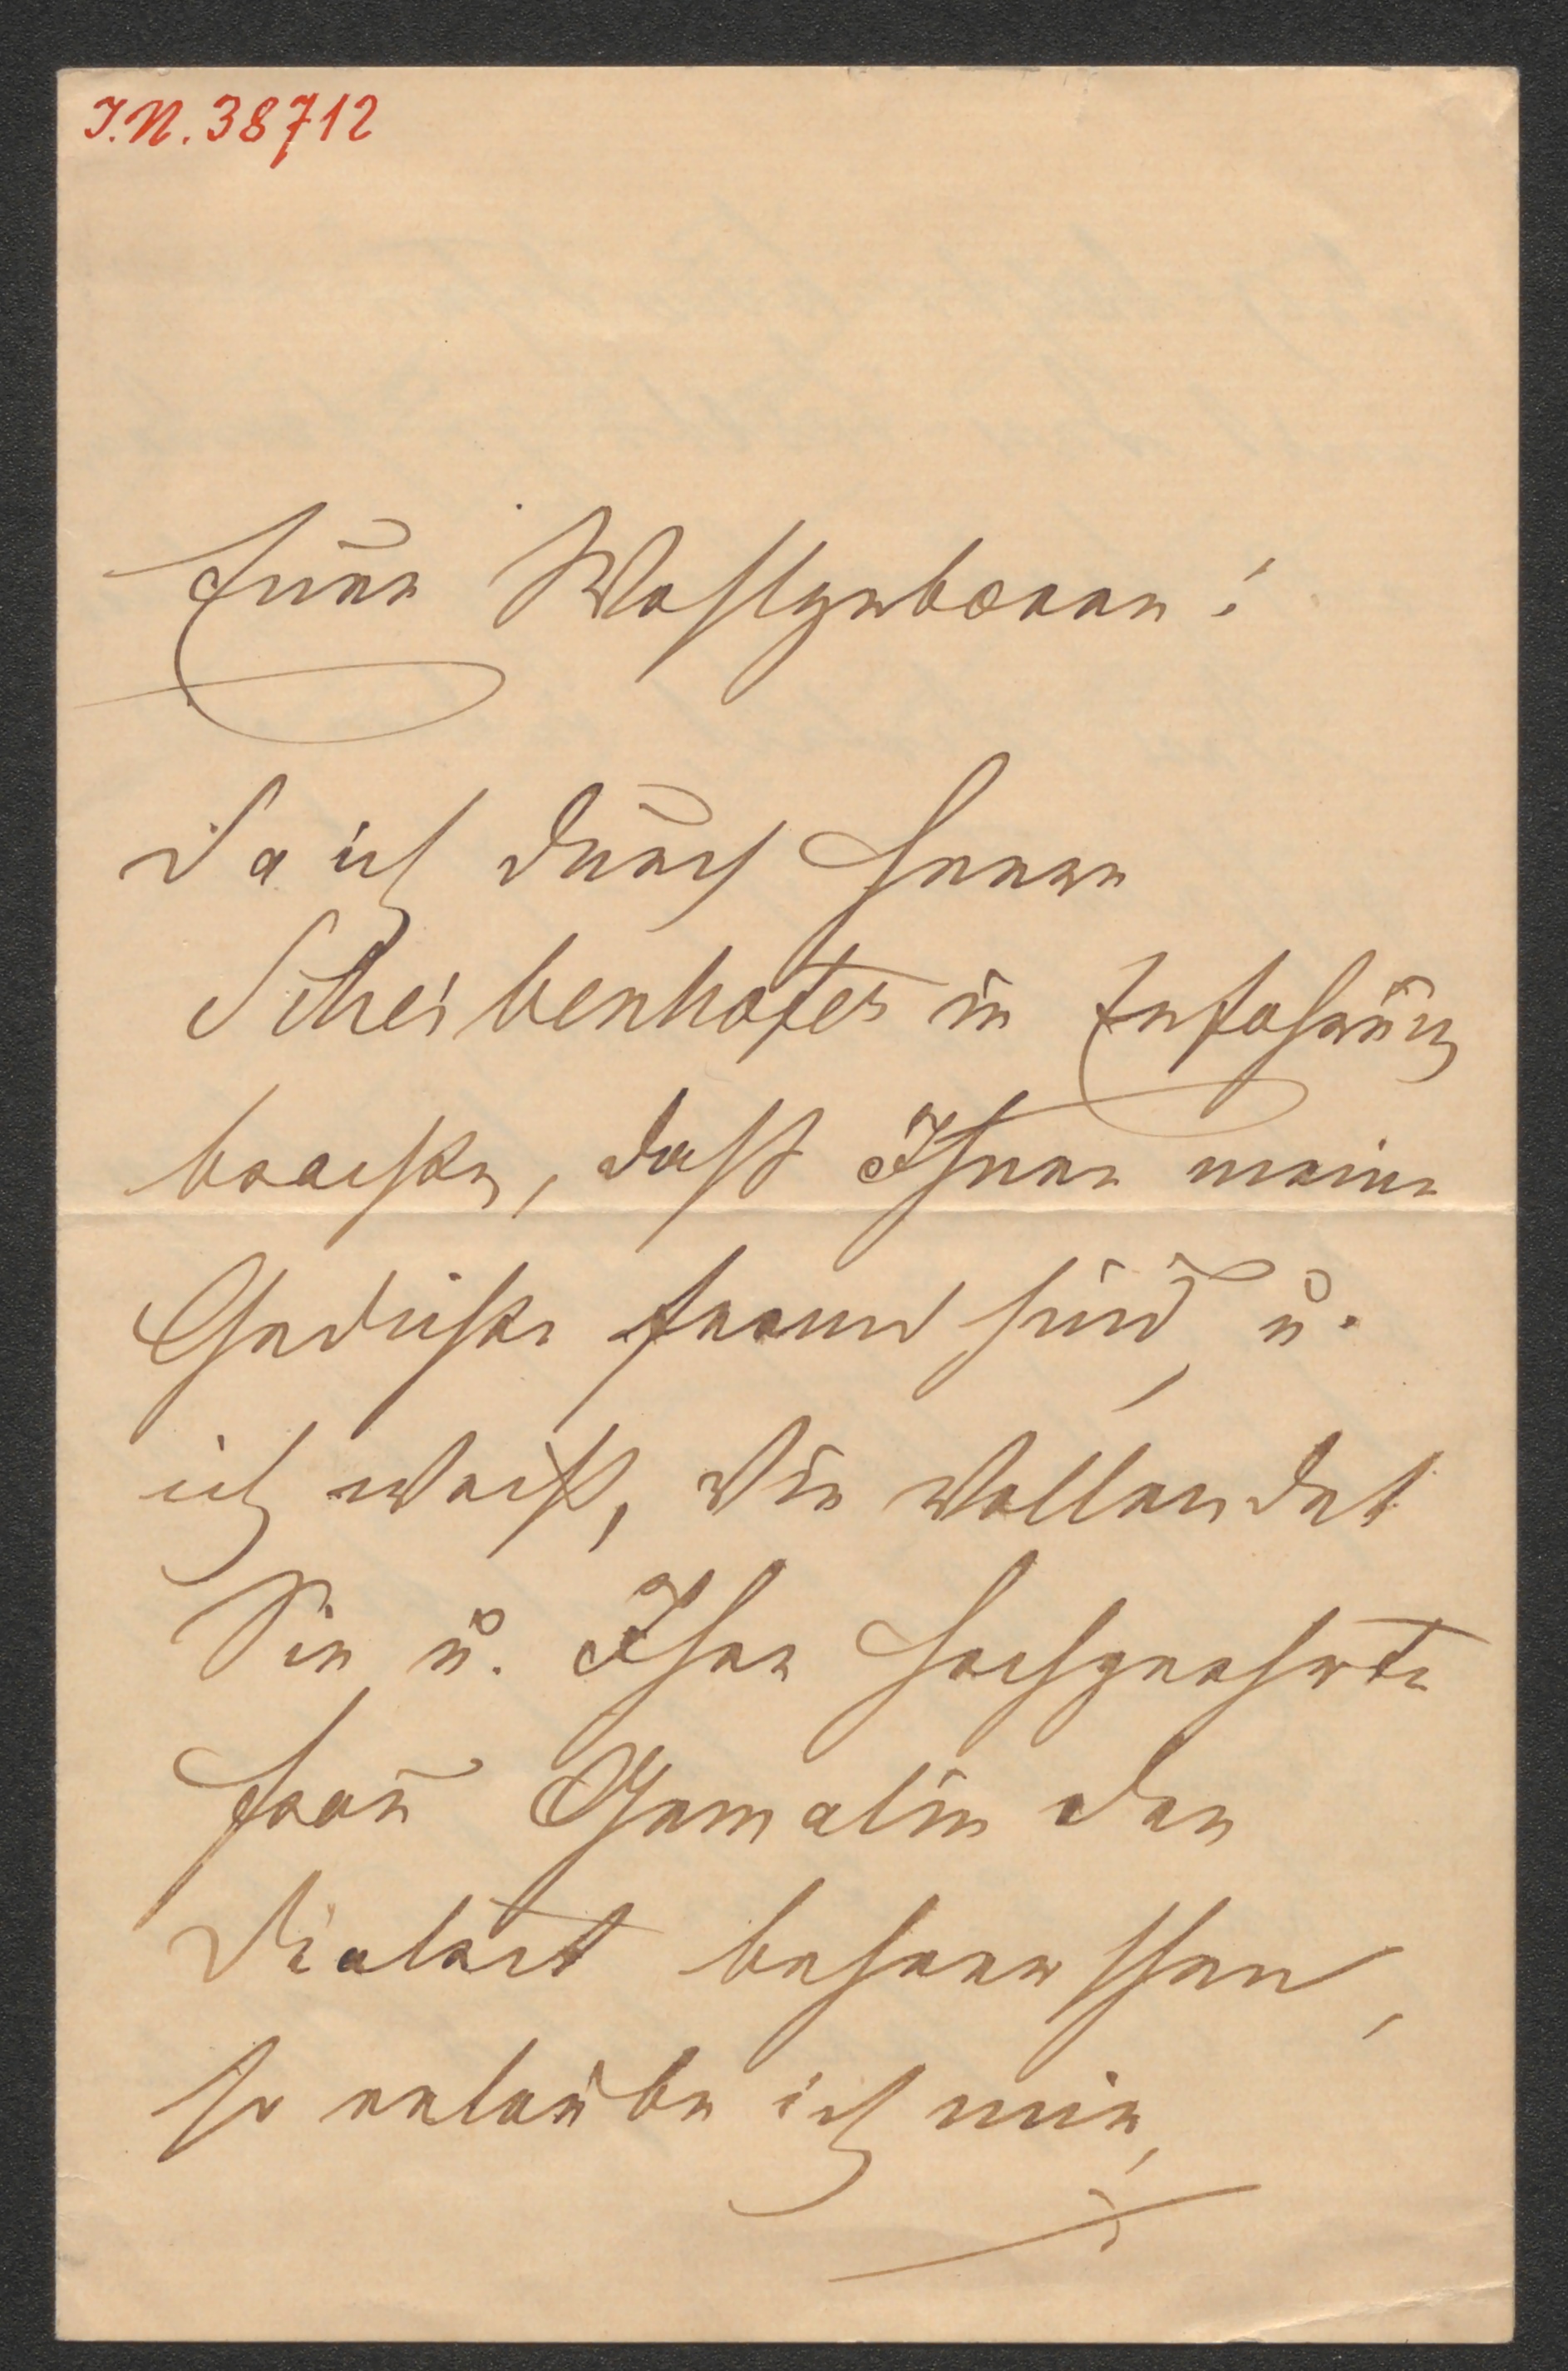 I.N. 38712
Euer Wohlgeboren!
Da ich durch Herrn
Scheibenhofer in Erfahrung
brachte, daß Ihnen meine
Gedichte fremd sind, u.
ich weiß, wie vollendet
Sie u. Ihre hochgeehrte
Frau Gemalin den
Dialect beherrschen,
so erlaube ich mir,